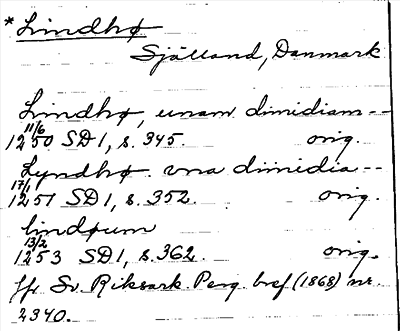 *Lindhø
Sjælland, Danmark
Lindhø, unam dimidiam --
11/6
1250 SD1, s. 345. orig.
Lyndhø. vna dimidia --
17/1
1251 SD1, s. 352. orig.
lindøum
13/2
1253 SD1, s. 362. orig.
jfr Sv. Riksark. Perg. bref (1868) nr.
2340.